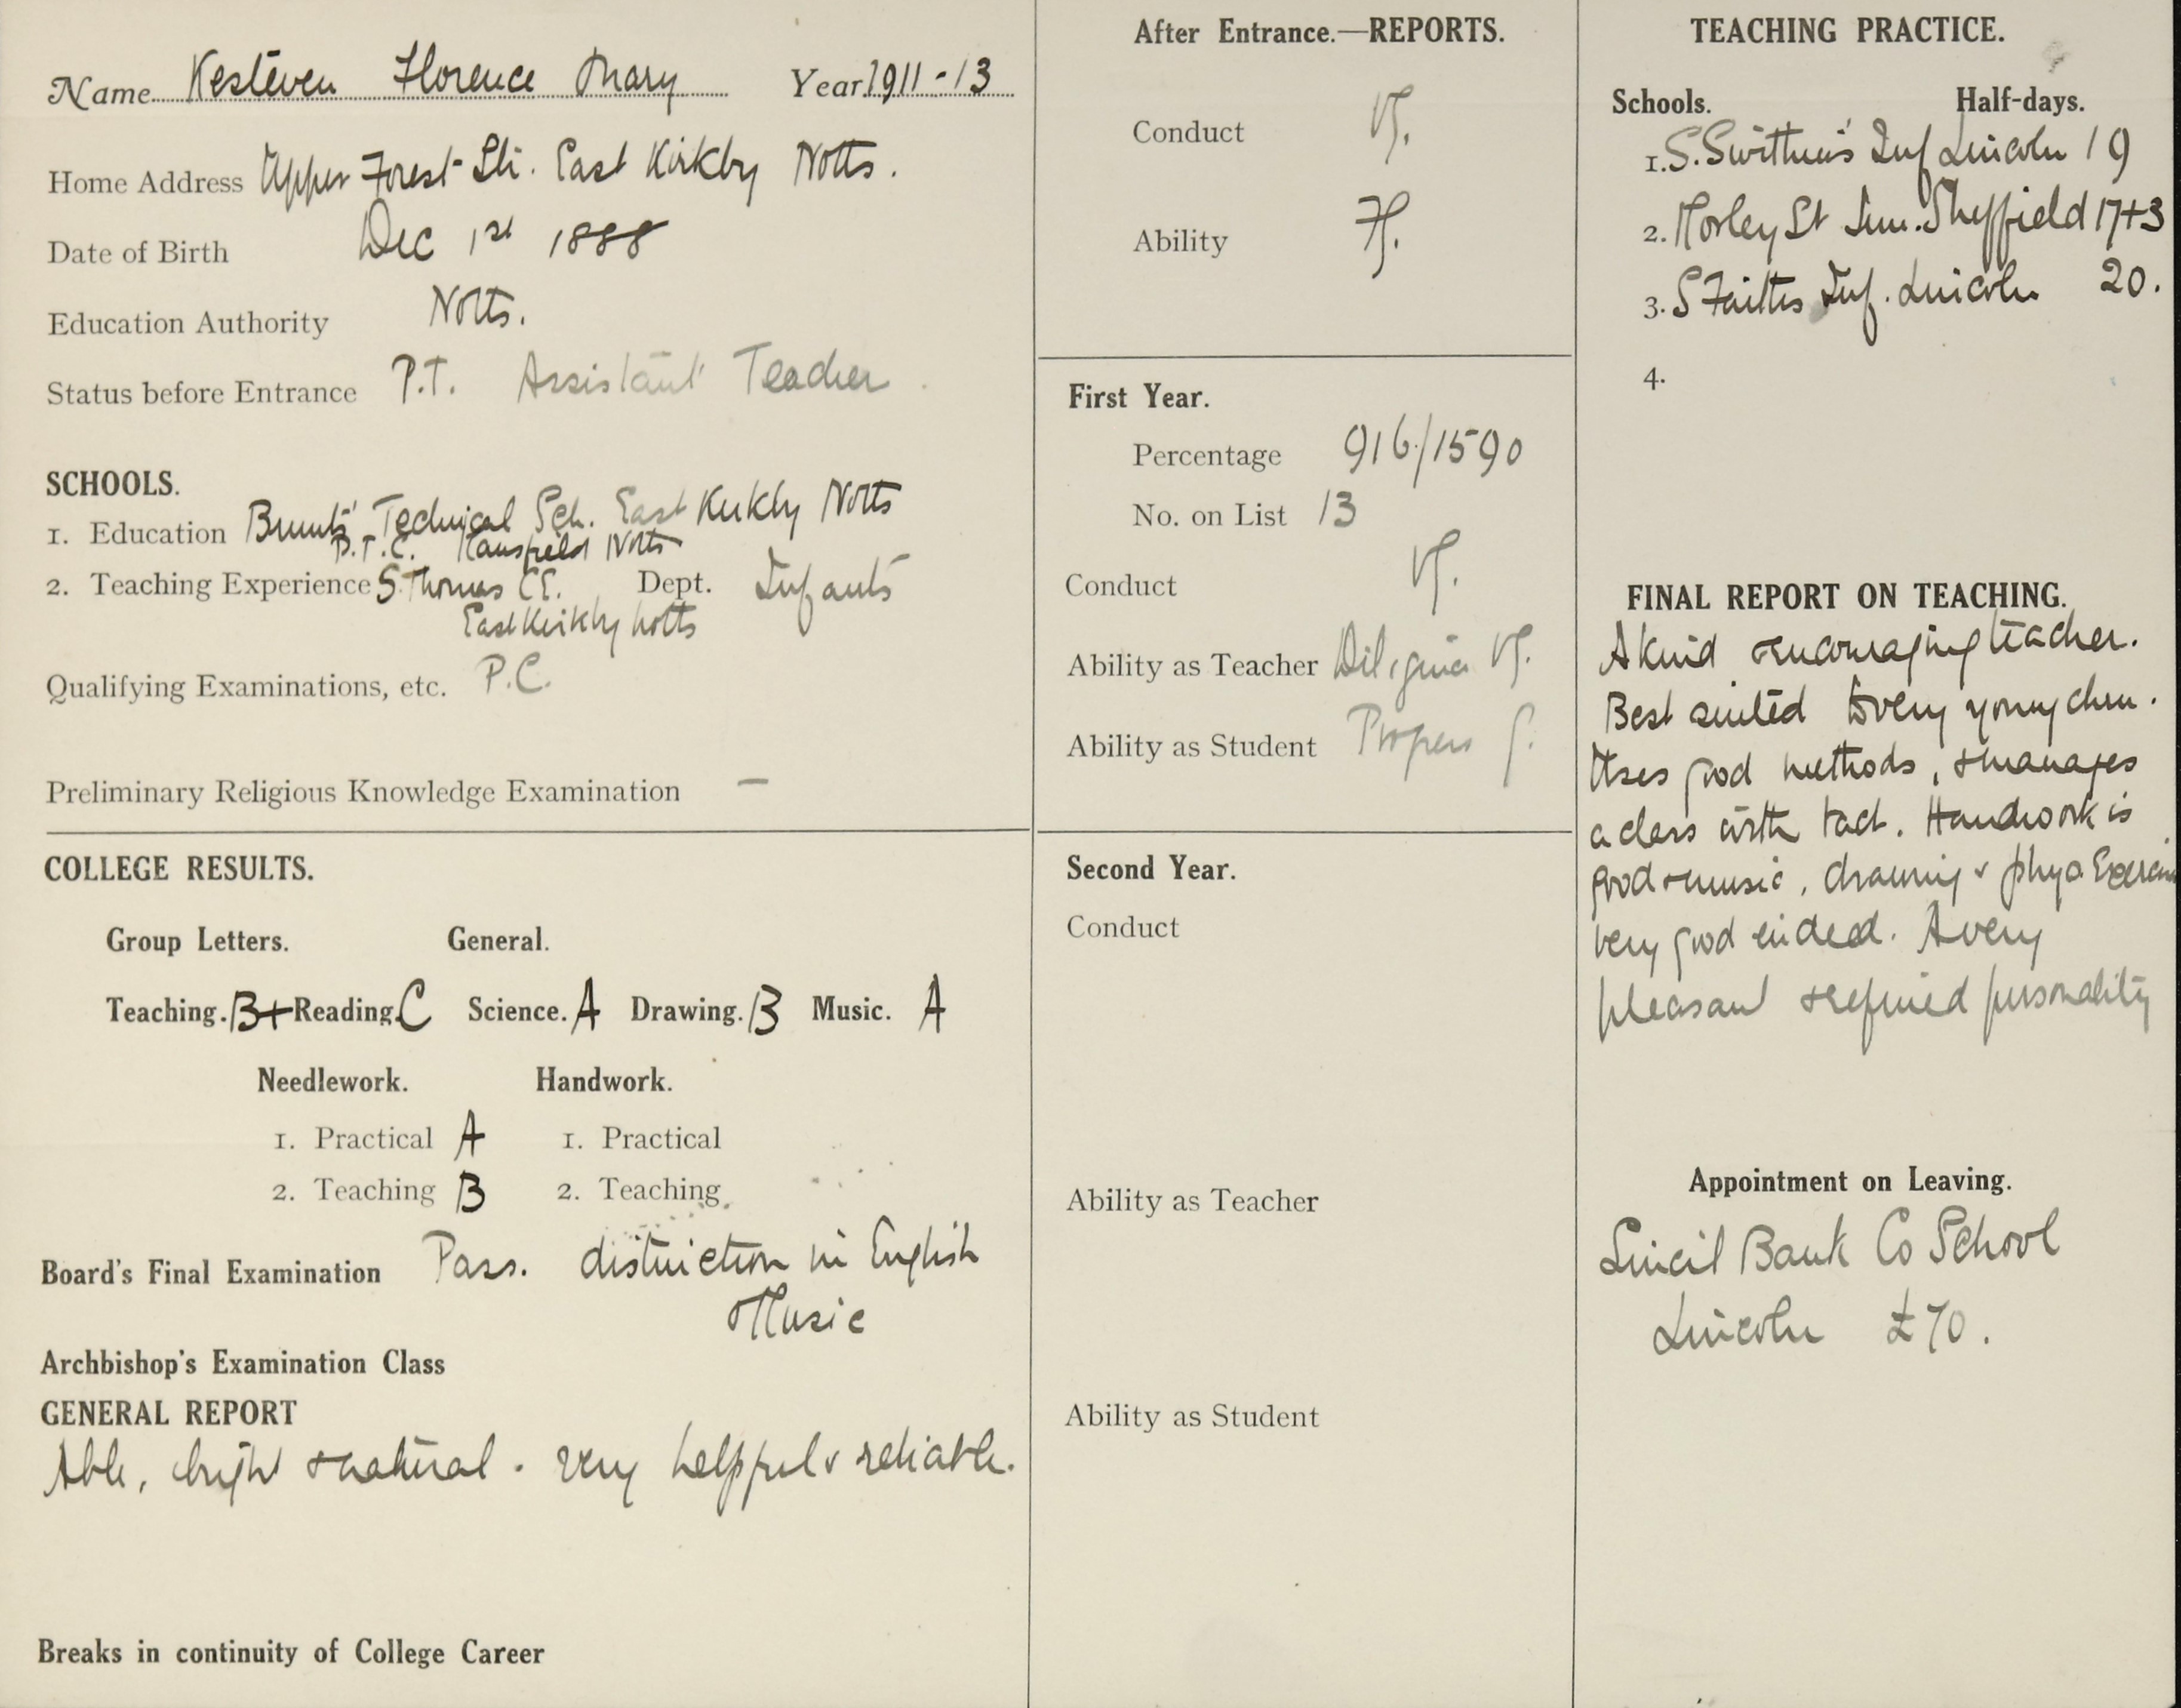 Name Kesteven Florence Mary Year 1911-13
Home Address Upper Forest St. East Kirkby Notts.
Date of Birth Dec 1st 1888
Education Authority Notts.
Status before Entrance P.T. Assistant Teacher
SCHOOLS.
1. Education Brunts' Technical Sch. East Kirkby Notts
P.T.C. Mansfield Notts
2. Teaching Experience S Thomas CE. Dept. Infants
East Kirkby Notts
Qualifying Examinations, etc. P.C.
Preliminary Religious Knowledge Examination —
COLLEGE RESULTS.
Group Letters. General.
Teaching. B+ Reading. C Science. A Drawing. B Music. A
Needlework. Handwork.
1. Practical A 1. Practical
2. Teaching B 2. Teaching
Board's Final Examination Pass. distinction in English
+ Music
Archbishop's Examination Class
GENERAL REPORT
Able, bright + natural. very helpful + reliable.
Breaks in continuity of College Career
After Entrance.—REPORTS.
Conduct VG.
Ability
First Year.
Percentage 916/1590
No. on List 13
Conduct VG.
Ability as Teacher VG.
Ability as Student G.
Second Year.
Conduct
Ability as Teacher
Ability as Student
TEACHING PRACTICE.
Schools. Half-days.
1. S. Swithin's Inf Lincoln 19
2. Morley St Sheffield 17+3
3. S Faiths Inf. Lincoln 20.
4.
FINAL REPORT ON TEACHING.
A kind + encouraging teacher.
Best suited to very young chn.
Uses good methods, + manages
a class with tact. Handwork is
good + music, drawing +
very good indeed. A very
pleasant + refined personality
Appointment on Leaving.
Sincil Bank Co School
Lincoln £70.